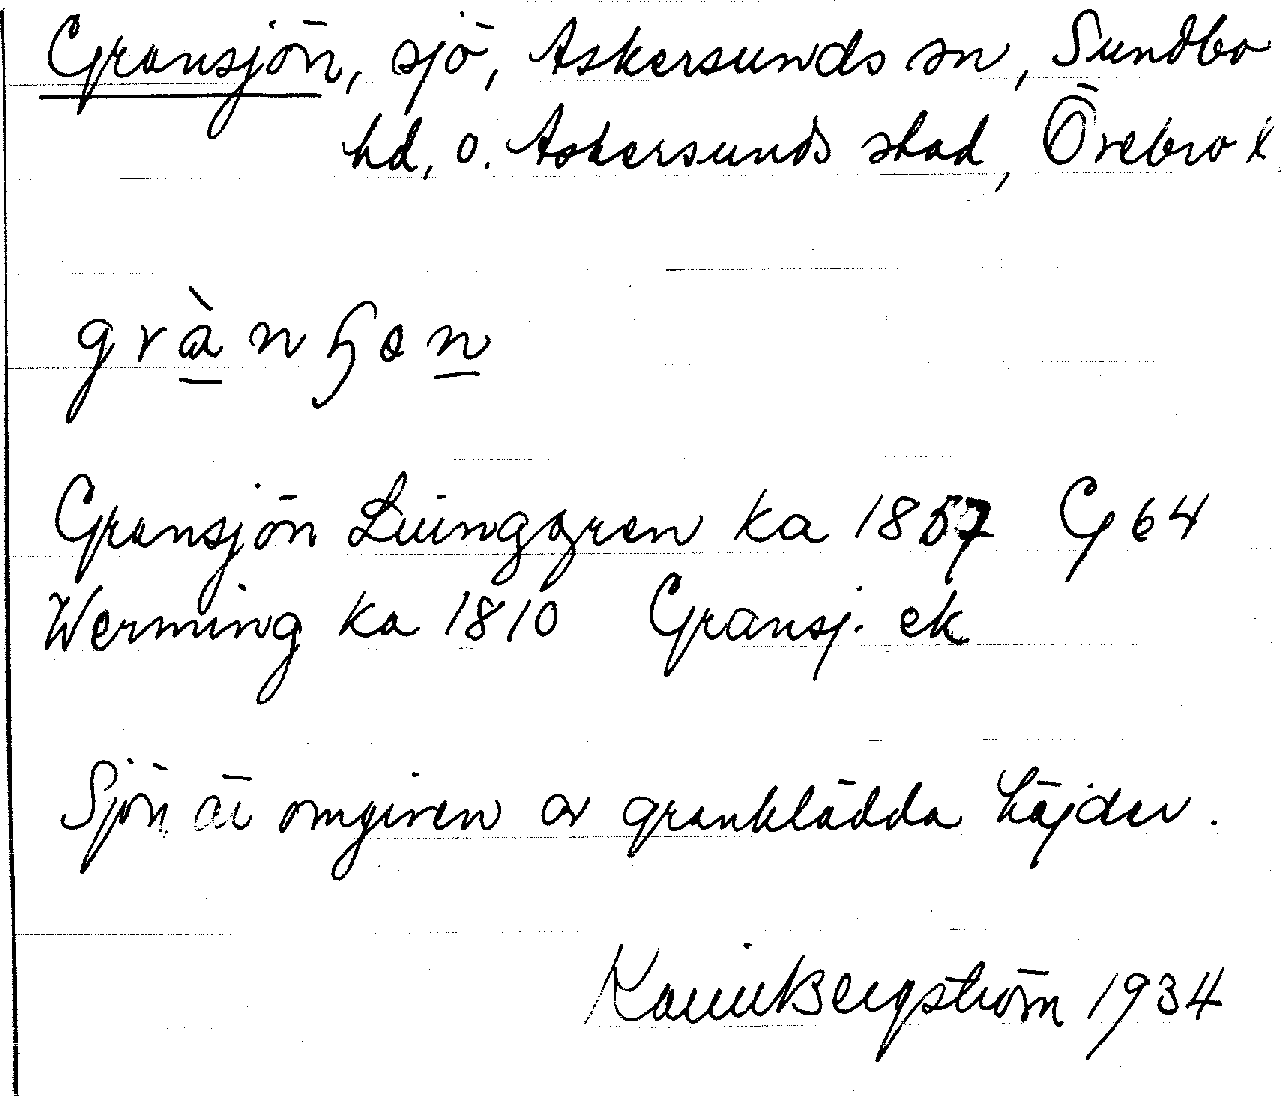 Gransjön, sjö, Askersunds sn, Sundbo
hd, o. Askersunds stad, Örebro l.
grànɧan
Gransjön Ljunggren ka 1857 G 64
Werming ka 1810 Gransj. ek
Sjön är omgiven av granklädda höjder.
Karin Bergström 1934